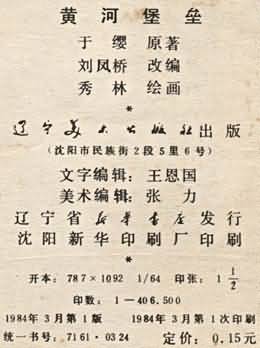 黄河堡垒
于缨 原著
刘凤桥 改编
秀林 绘画
*
辽宁美术出版社出版
(沈阳市民族街2段5里6号)
文字编辑:王恩国
美术编辑:张力
辽宁省新华书店发行
沈阳新华印刷厂印刷
*
开本:787×1092 1/64 印张:1 1/2
印数:1—406.500
1984年3月第1版 1984年3月第1次印刷
统一书号:7161·0324 定价:0.15元